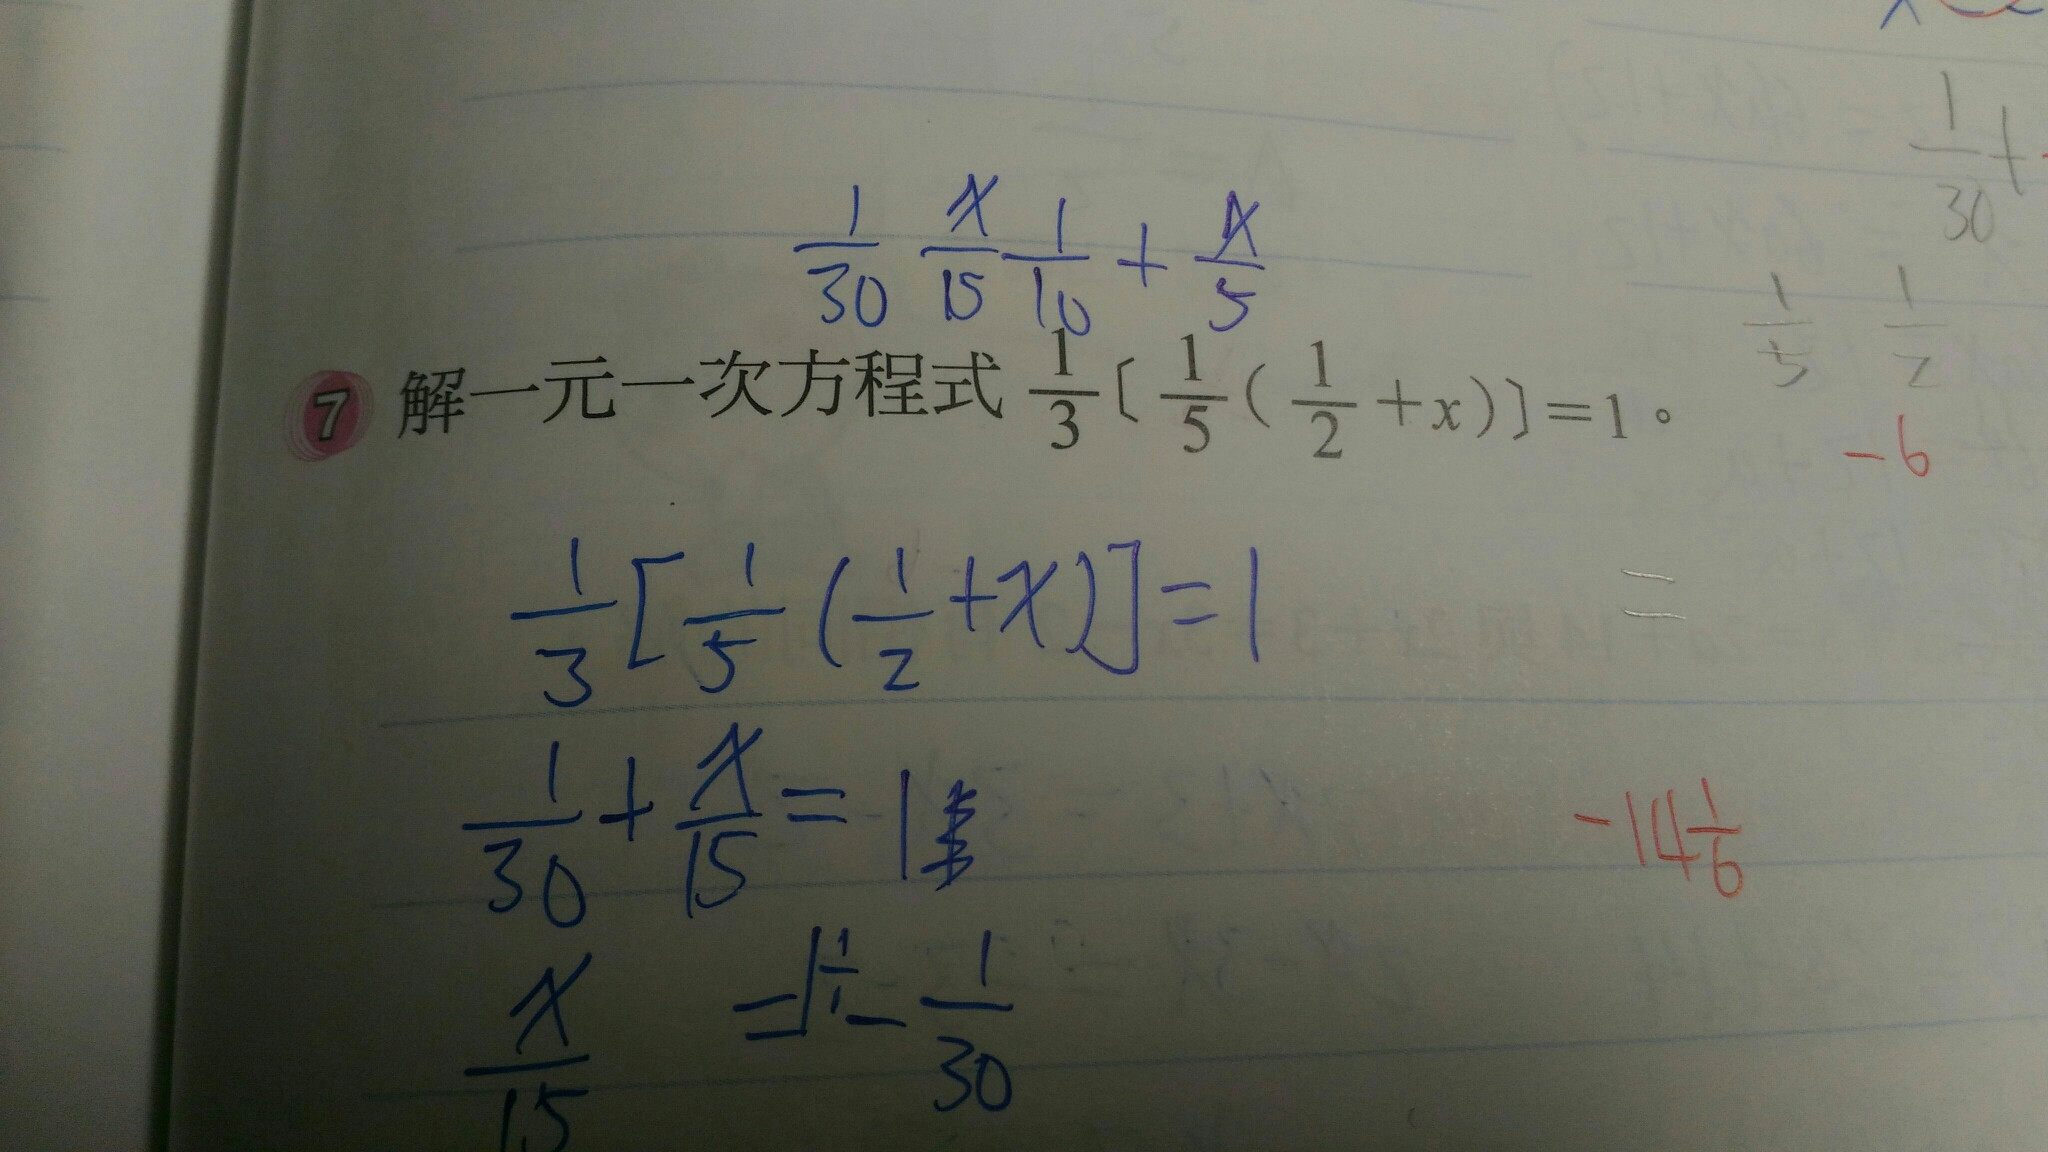 1/30 x/15 1/10 + x/5
1/30 +
1/5 1/2
7 解一元一次方程式 1/3〔1/5(1/2+x)〕=1。
-6
1/3[1/5(1/2+x)]=1
=
1/30+x/15=1
-14 1/6
x/15 = 1/1 - 1/30